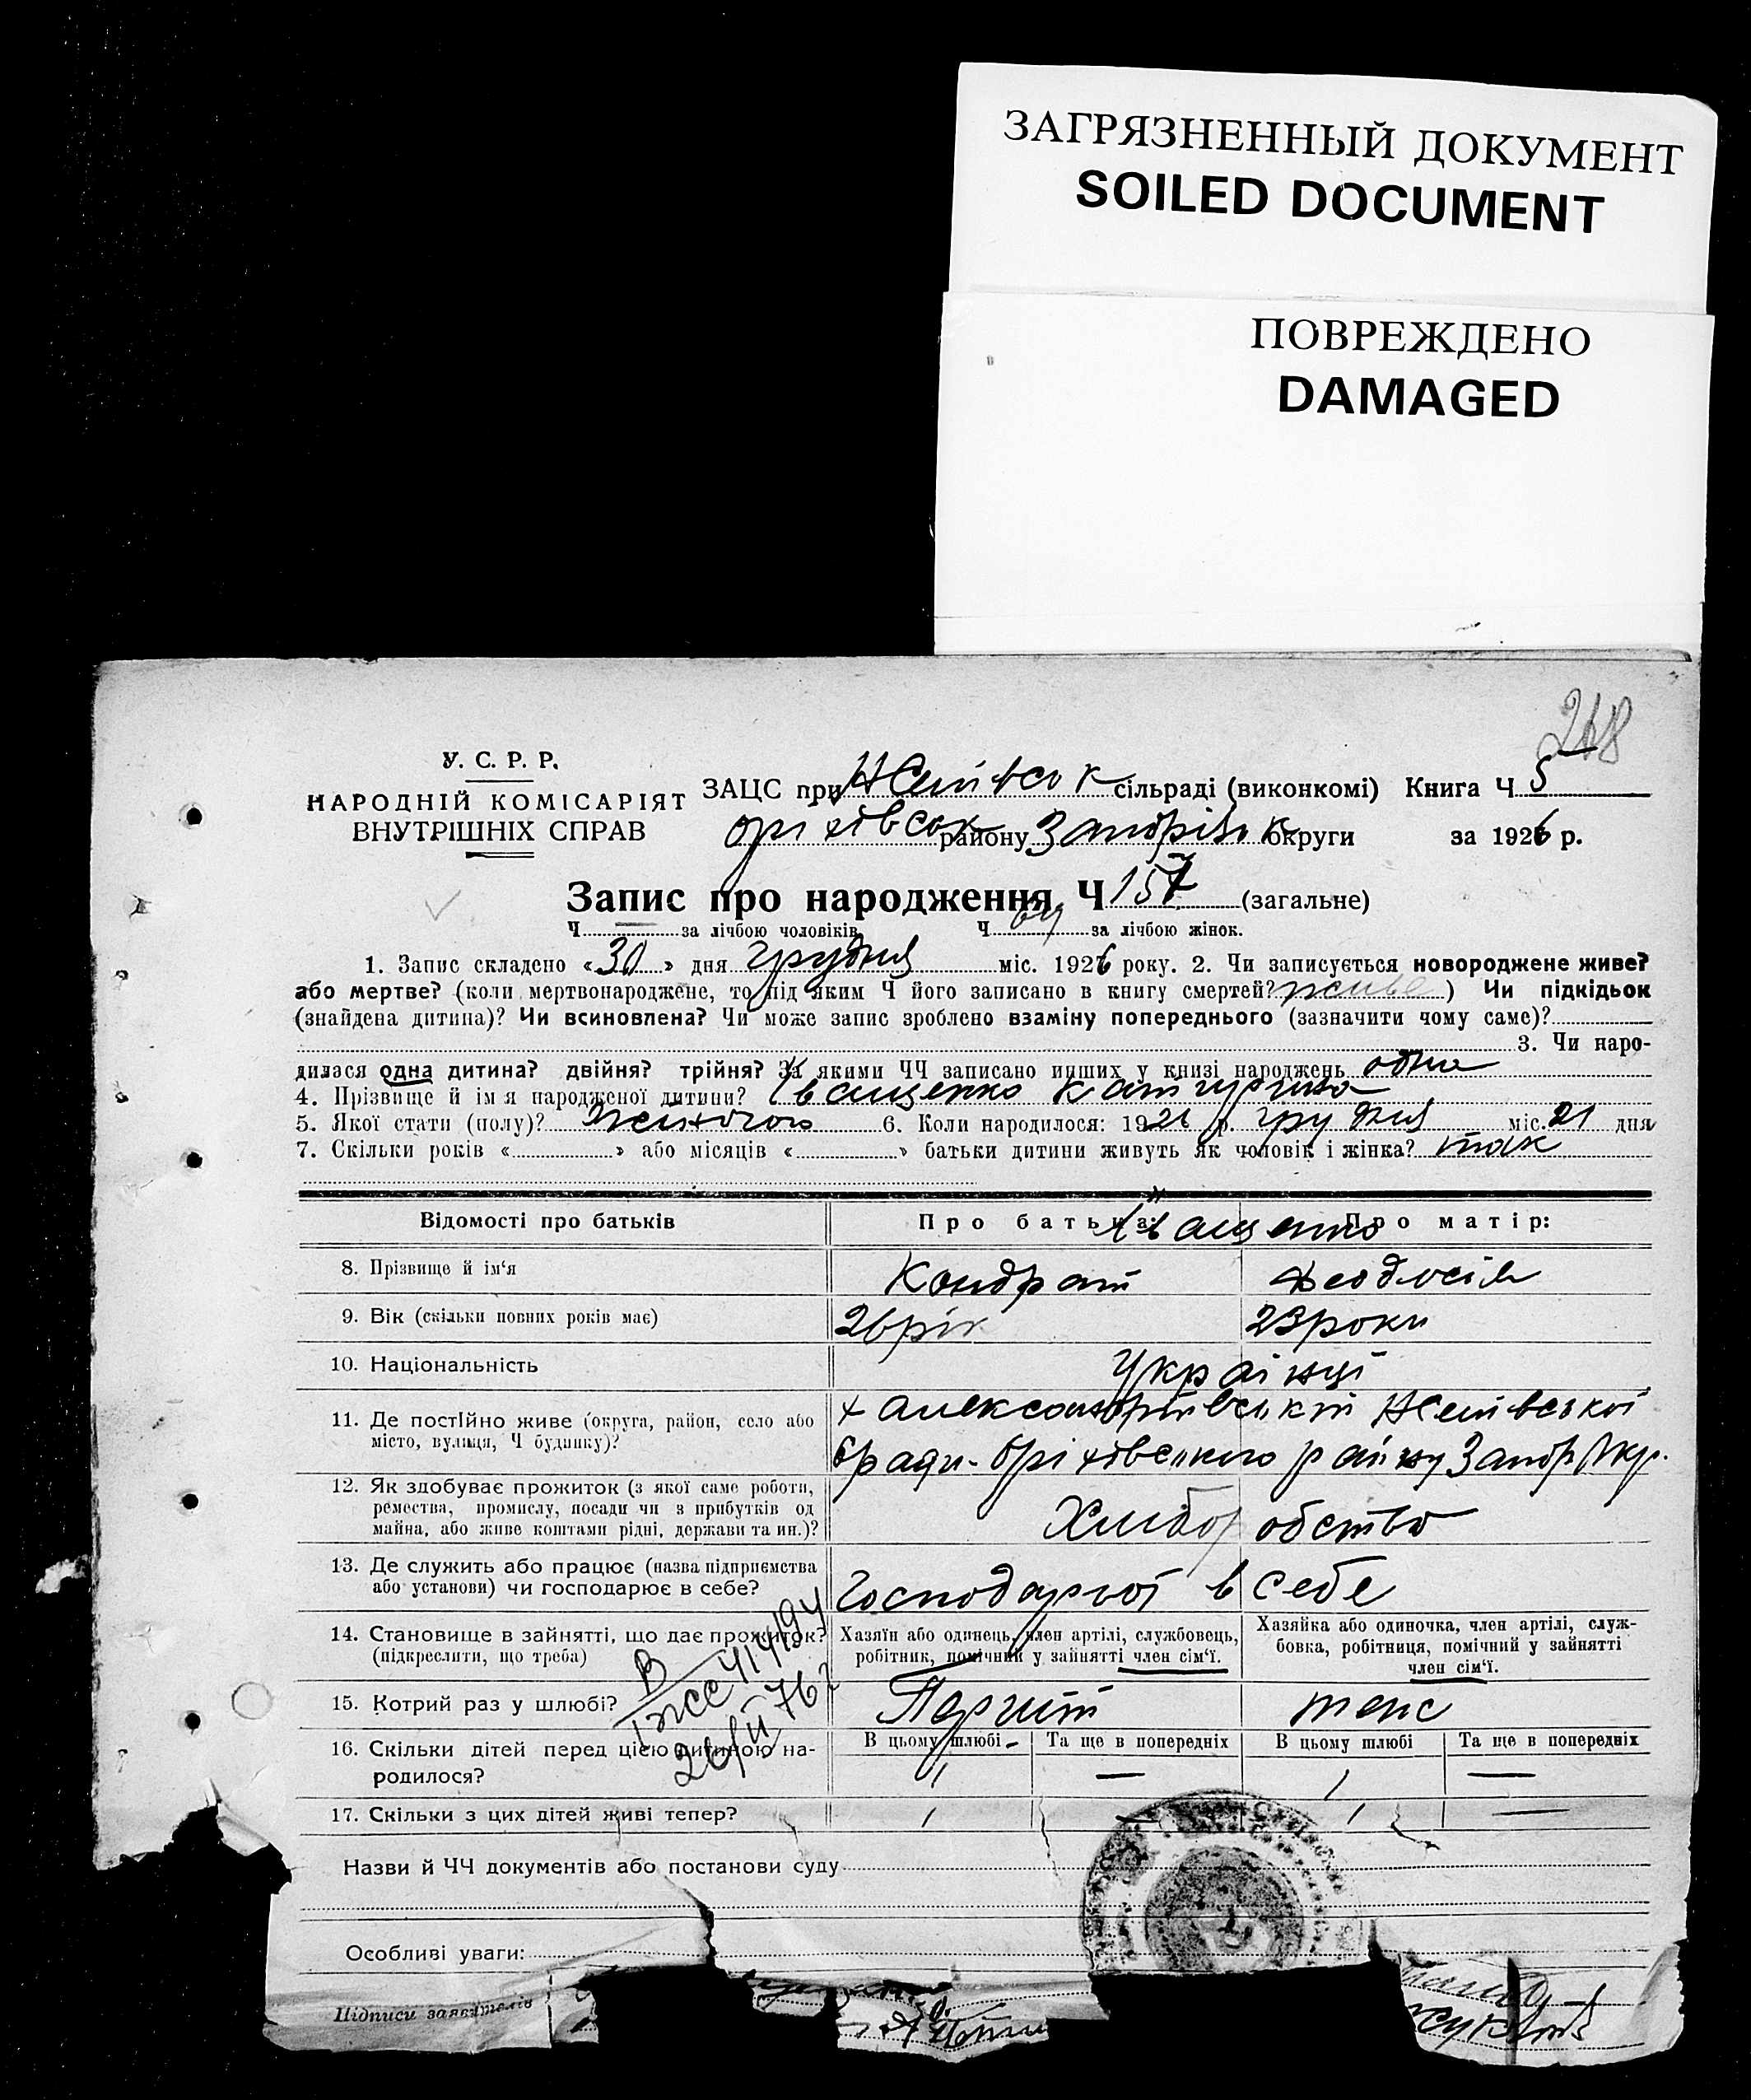 ЗАГРЯЗНЕННЫЙ ДОКУМЕНТ
SOILED DOCUMENT
ПОВРЕЖДЕНО
DAMAGED
У. С. Р. Р.
НАРОДНІЙ КОМІСАРІЯТ
ВНУТРІШНІХ СПРАВ
ЗАЦС при сільраді (виконкомі) Книга Ч 5
оріхівськ району Запоріз к округи за 1926 р.
Запис про народження Ч 157 (загальне)
Ч за лічбою чоловіків Ч за лічбою жінок.
1. Запис складено «30» дня грудня міс. 1926 року. 2. Чи записується новороджене живе?
або мертве? (коли мертвонароджене, то під яким Ч його записано в книгу смертей? живе) Чи підкідьок
(знайдена дитина)? Чи всиновлена? Чи може запис зроблено взаміну попереднього (зазначити чому саме)?
3. Чи наро-
дилася одна дитина? двійня? трійня? За якими ЧЧ записано инших у книзі народжень одна
4. Прізвище й імя народженої дитини? Іващенко Катирина
5. Якої стати (полу)? 6. Коли народилося: 1926 р. грудня міс. 21 дня
7. Скільки років « » або місяців « » батьки дитини живуть як чоловік і жінка? так
Відомості про батьків Про батька: Іващенко Про матір:
8. Прізвище й ім'я Кондрат Феодосія
9. Вік (скільки повних років має) 26 рік 23 роки
10. Національність Українці
11. Де постійно живе (округа, район, село або
місто, вулиця, Ч будинку)?
Оріхівського району Запор Окр.
12. Як здобуває прожиток (з якої саме роботи,
ремества, промислу, посади чи з прибутків од
майна, або живе коштами рідні, держави та ин.)?
Хліборобство
13. Де служить або працює (назва підприємства
або установи) чи господарює в себе?
в себе
14. Становище в зайнятті, що дає прожиток?
(підкреслити, що треба)
Хазяїн або одинець, член артілі, службовець,
робітник, помічний у зайнятті член сім'ї.
Хазяйка або одиночка, член артілі, служ-
бовка, робітниця, помічний у зайнятті
член сім'ї.
15. Котрий раз у шлюбі?
16. Скільки дітей перед цією дитиною на-
родилося?
В цьому шлюбі Та ще в попередніх В цьому шлюбі Та ще в попередніх
1 — 1 —
17. Скільки з цих дітей живі тепер? 1 — 1 —
Назви й ЧЧ документів або постанови суду
Особливі уваги:
Підписи заявителів